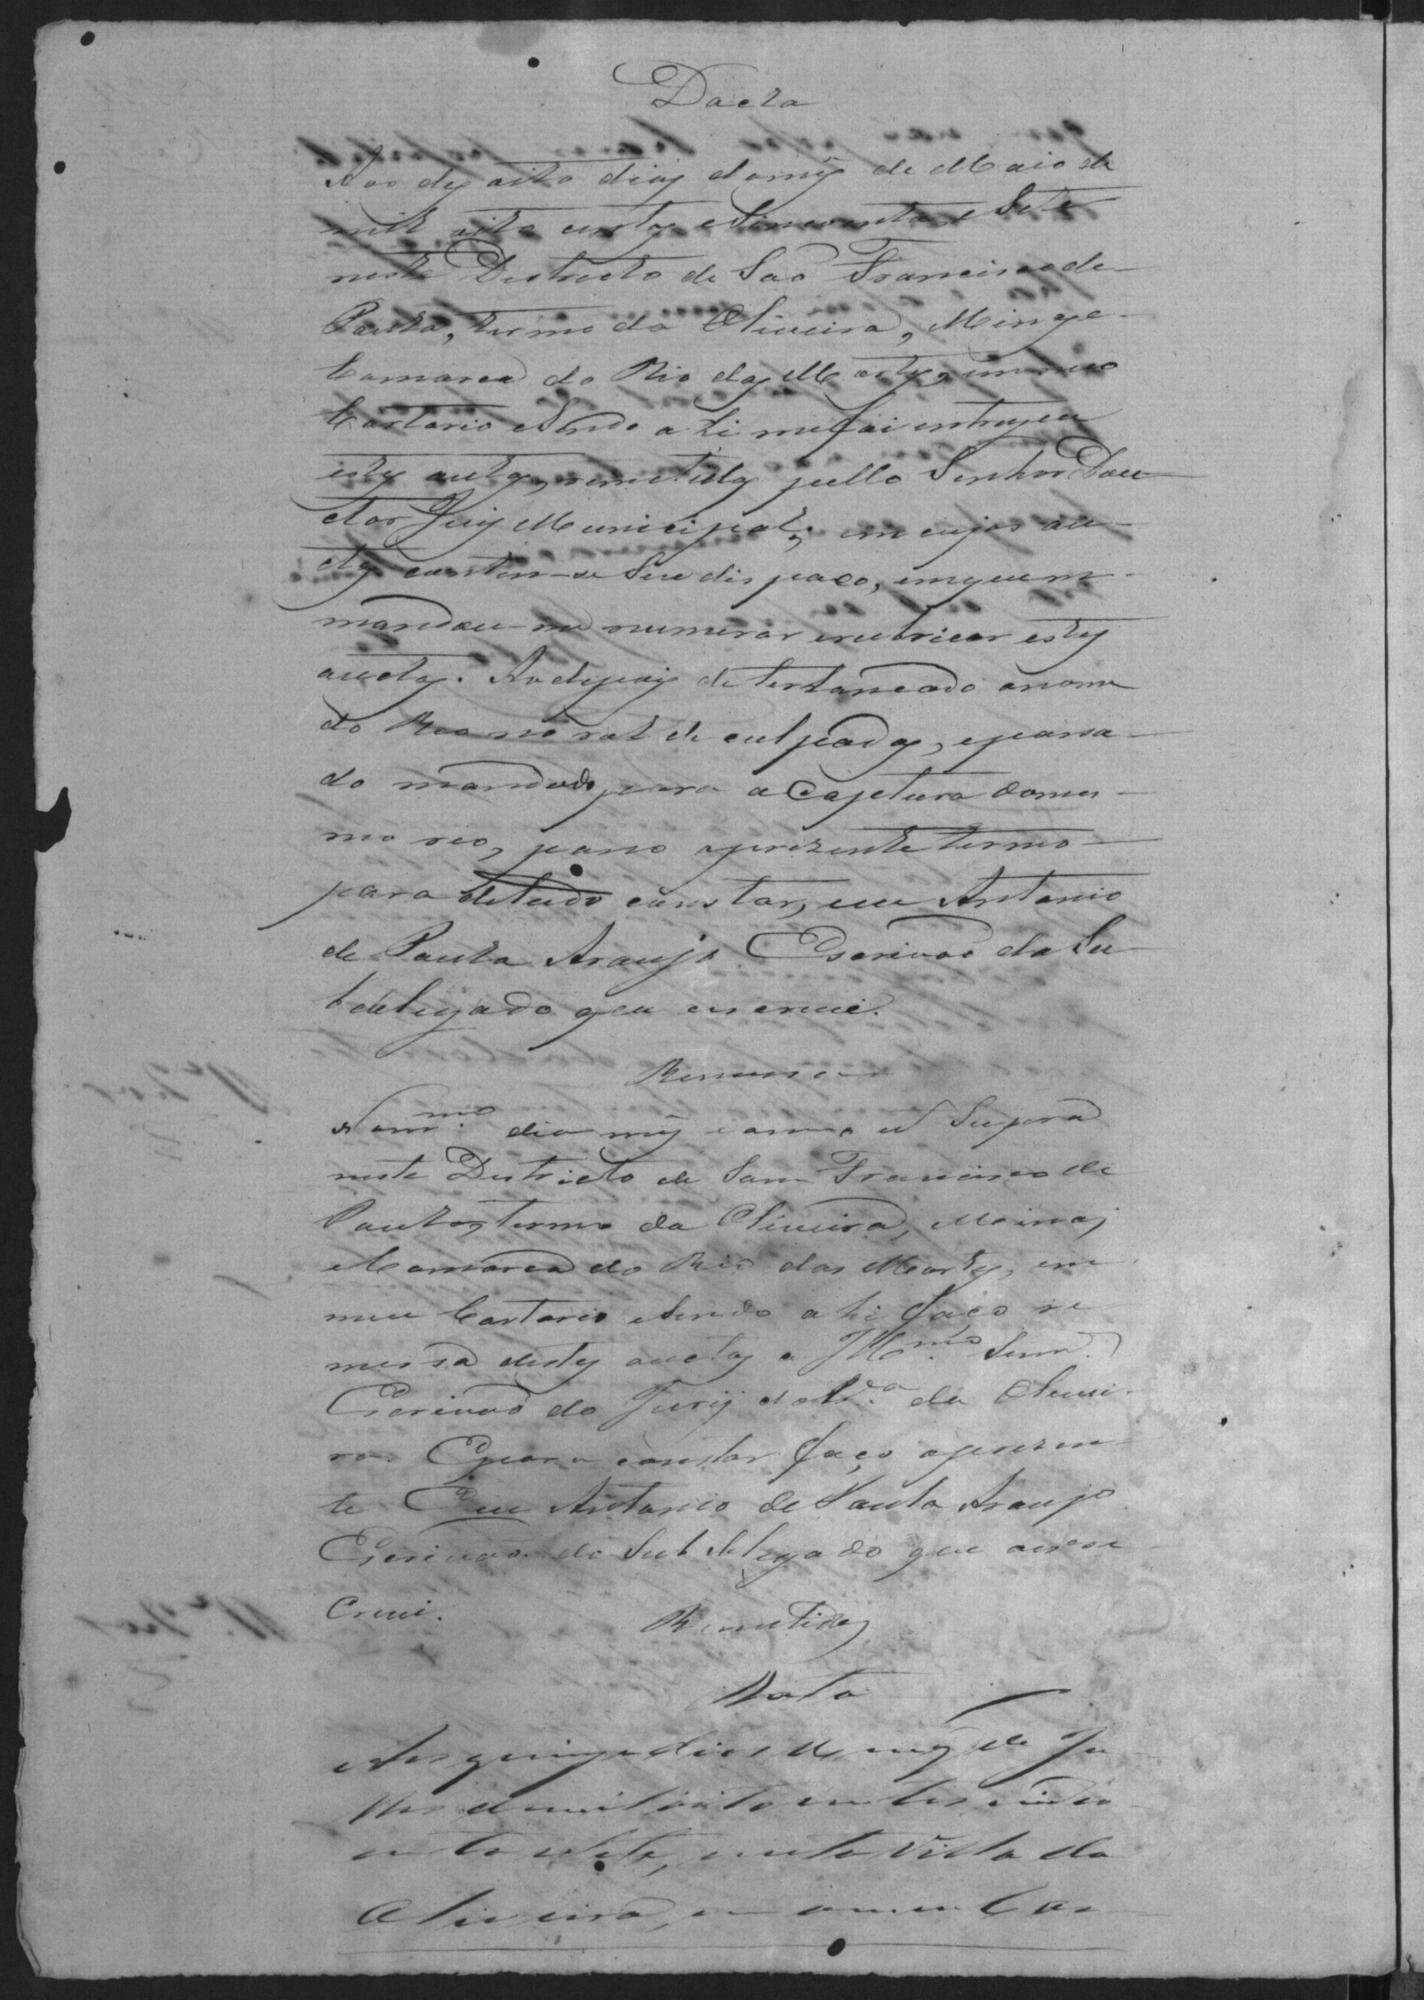 Dacta
Aos dezoito dias do mez de Maio de
mil oito centos e Sincoenta e Sete
neste Destricto de Sao Francisco de
Paula, termo da Oliveira, Minas e
Comarca do Rio das Mortes, em meu
Cartorio e sendo a hi me foi entregue
estes autos, remetidos pello Senhor Dou
ctor Juiz Municipal, em cujos au
tos contem-se seu dispaxo, em que me
mandou-me numerar e rubricar estes
auctos. Ao depois de ter lancado o nome
do Reo no rol de culpados, e passa
do mandado para a Captura do mes
mo reo, passo o prezente termo
para de tudo constar, eu Antonio
de Paula Araujo Escrivao do Su
bdelegado que escrevi.
Remessa
No mesmo dia mez e anno ut Supra
neste Destricto de Sam Francisco de
Paula, termo da Oliveira, Minas
e Comarca do Rio das Mortes, em
meu Cartorio e sendo a hi faço re
messa destes auctos a Illmo. Senr.
Escrivao do Jury da Va. da Olivei
ra. E para constar faço o prezen
te Eu Antonio de Paula Araujo
Escrivao do Subdelegado que a es
crevi.
Remetidos
Data
Aos quinze dias do mez de Ju
lho de mil oito centos e cinco
enta e Sete, nesta Villa da
Oliveira, em o meu Car